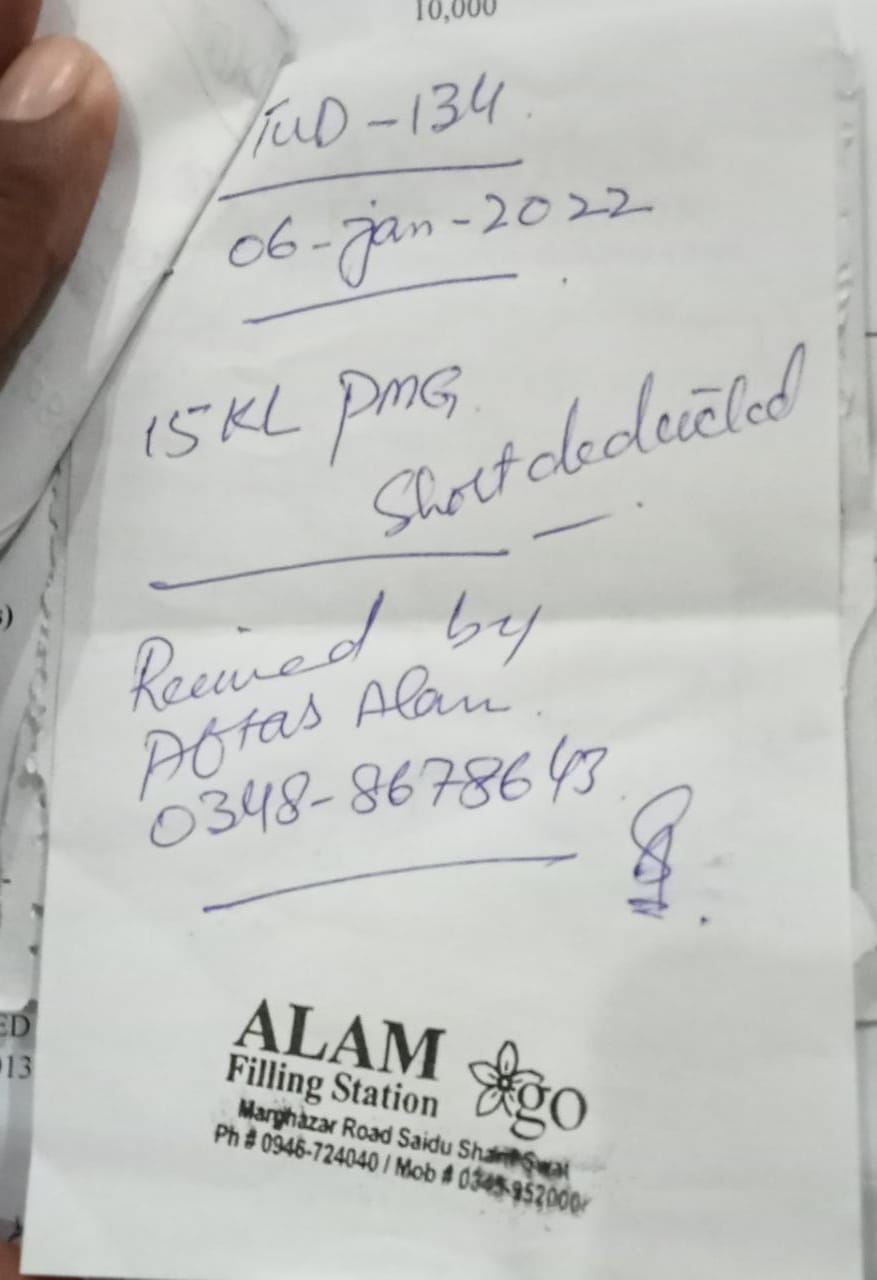 10,000
TUD-134.
06-jan-2022
15 KL PMG.
Short deducted
Received by
Aftas Alam.
0348-8678643
ALAM
Filling Station
go
Marghazar Road Saidu Sharif Swat
Ph # 0946-724040 / Mob #
ED
013